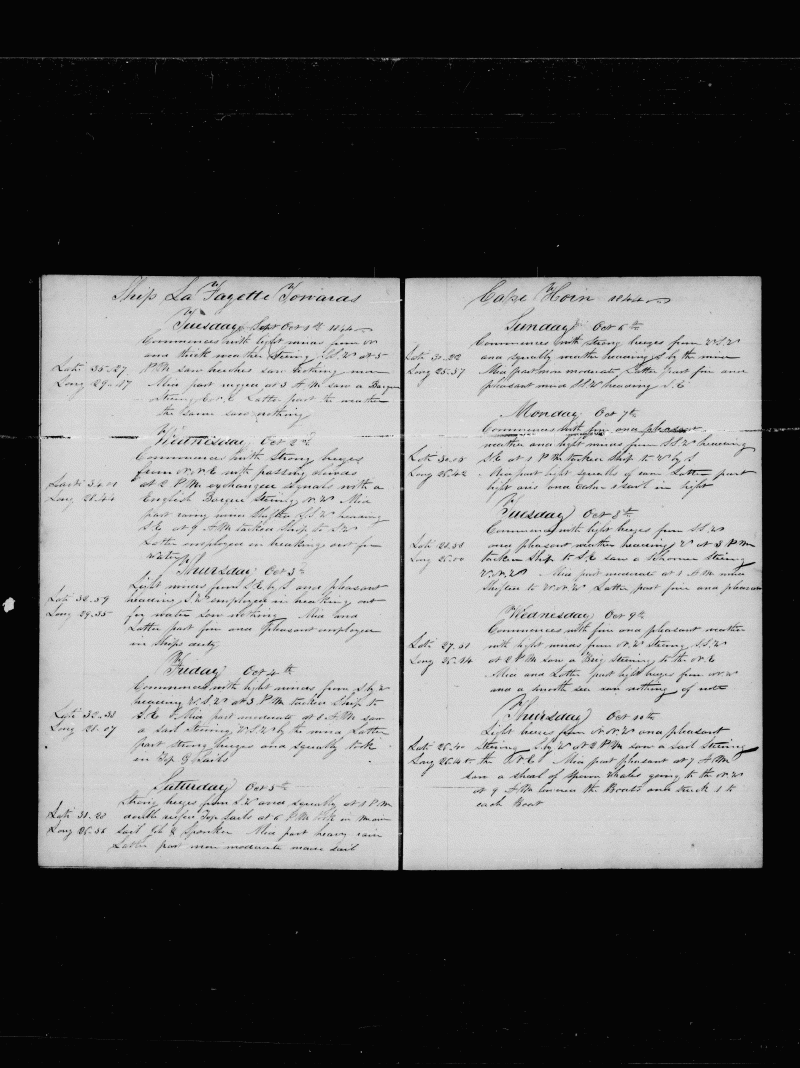 Ship La Fayette Towards
Tuesday Sept Oct 1th 1844
Commences with light winds from
and thick weather Stering S.S.W at 5
Lati 35-27 P M saw breches saw nothing more
Long 29-47 Mid part rugged at 3 A M saw a Barque
Stering Latter part the weather
the same saw nothing
Wednesday Oct 2nd
Commences with Strong breges
from N.N.E with passing clouds
Lati 34-01 at 2 P M exchanged signals with a
Long 28-44 English Barque Stering N.W Mid
part rainy wind Shifted S.S.W heading
S.E at 9 A M tacked Ship to S.W
Latter employed in breaking out for
water
Thursday Oct 3th
Light winds from S.E by S and pleasant
Lati 32-59 heading S.W employed in breaking out
Long 29-35 for water seen nothing Mid and
Latter part fin and pleasant employed
in Ships duty
Friday Oct 4th
Commences with light winds from S by W
heading W.S.W at 3 P M tacked Ship to
Lati 32-38 S.E Mid part moderate at 8 A M saw
Long 28-07 a Sail Stering W.S.W by the wind Latter
part strong breges and squally took
in Top G Sails
Saturday Oct 5th
Strong breges from S.W and squally at 1 P M
Lati 31-28 double reefed Top Sails at 6 P M took in main
Long 26-36 Sail Jib & Spanker Mid part heavy rain
Latter part more moderate made sail
Cape Horn 1844
Sunday Oct 6th
Commences with Strong breges from W.S.W
Lati 31-22 and squally weather heading S by the wind
Long 25-37 Mid part mor moderate Latter part fin and
pleasant wind S.S.W heading S.E
Monday Oct 7th
Commences with fin and pleasant
weather and light winds from S.S.W heading
Lati 30-18 S.E at 1 P M tacked Ship to W by S
Long 25-42 Mid part light squalls of rain Latter part
light airs and calm 1 sail in sight
Tuesday Oct 8th
Commences with light breges from S.S.W
Lati 28-58 and pleasant weather heading W at 3 P M
Long 25-00 tacked Ship to S.E saw a Schooner Stering
W.N.W Mid part moderate at 1 A M wind
Shifted to W.N.W Latter part fin and pleasant
Wednesday Oct 9th
Commences with fin and pleasant weather
Lati 27-31 with light winds from N.W Stering S.S.W
Long 25-14 at 2 P M saw a Brig Stering to the N.E
Mid and Latter part light breges from N.W
and a smooth sea saw nothing of note
Thursday Oct 10th
Light breges from N.N.W and pleasant
Lati 26-40 Stering S by W at 2 P M saw a Sail Stering
Long 25-45 to the N.E Mid part pleasant at 7 A M
saw a shoal of Sperm Whales going to the N.W
at 9 A M lowered the Boats and struck 1 to
each Boat